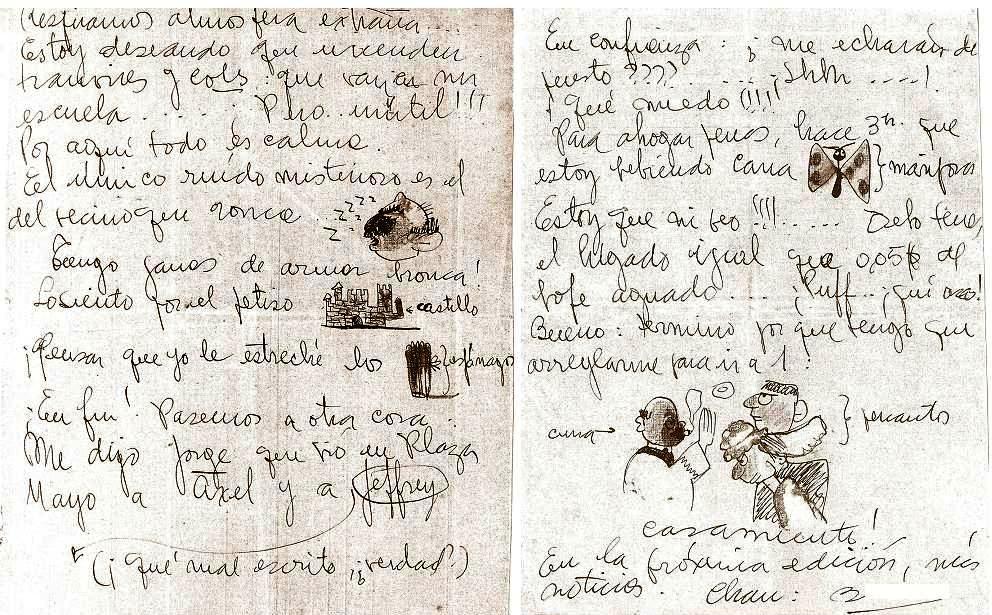 (respiramos atmósfera extraña...
Estoy deseando que incendien
tranvires y cols. que vayan mi
escuela..... Pero..inútil!!!
Por aquí todo és calma.
Eel único ruido misterioso es el
del vecino que ronca..
z z z z z z z
Tengo ganas de armar bronca!
Lo siento por el petiso
castillo
¡Pensar que yo le estreché los
espinazos
¡En fin! Pasemos a otra cosa.
Me dijo Jorge que vio en Plaza
Mayo a Axel y a Jeffrey
(¡Qué mal escrito ¡¿verdad?)
En confianza: ¿¡me echarán de
puesto???? ..... Shhh ....!
¡Qué miedo!!!!
Para ahogar penas, hace 3 hs. que
estoy bebiendo Caña
mariposa
Estoy que ni veo!!!!..... Debo tener
el hígado igual que 0,05$ de
bofe aguado.... ¡Puff..¡qué asco!
Bueno: termino por que tengo que
arreglarme para ir a 1:
cura
percantos
casamiento!
En la próxima edición, más
noticias. Chau: